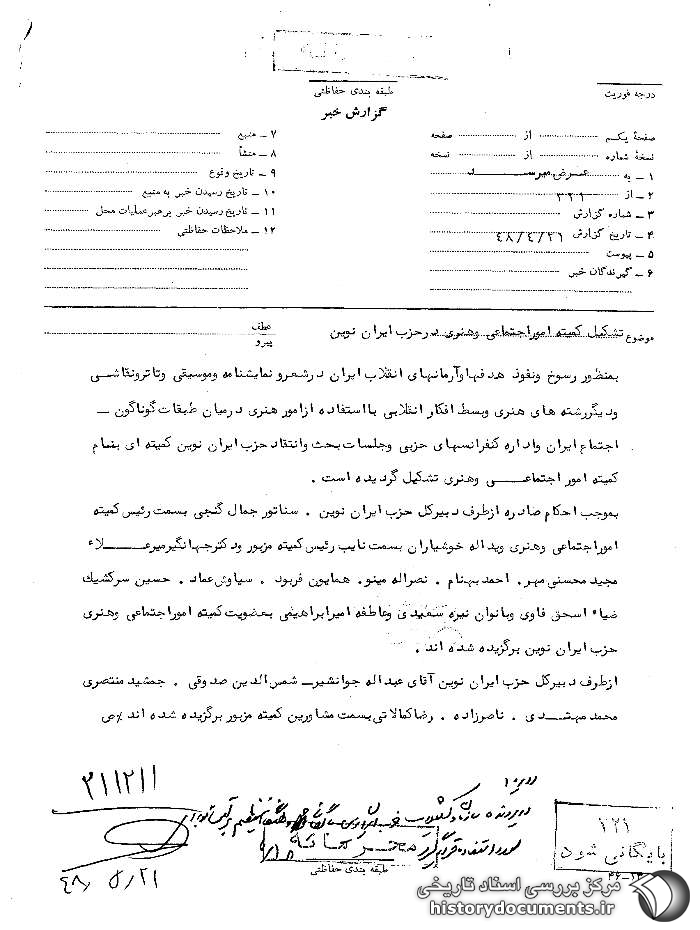 درجه فوریت
طبقه بندی حفاظتی
گزارش خبر
صفحهٔ یکم از صفحه
نسخهٔ شماره از نسخه
۱ ـ به عرض میرسد
۲ ـ از ۳۲۱
۳ ـ شماره گزارش
۴ ـ تاریخ گزارش ۴۸/۴/۲۱
۵ ـ پیوست
۶ ـ گیرندگان خبر
۷ ـ منبع
۸ ـ منشأ
۹ ـ تاریخ وقوع
۱۰ ـ تاریخ رسیدن خبر به منبع
۱۱ ـ تاریخ رسیدن خبر برهبر عملیات محل
۱۲ ـ ملاحظات حفاظتی
موضوع تشکیل کمیته اموراجتماعی وهنری درحزب ایران نوین
عطف
پیرو
بمنظور رسوخ ونفوذ هدفهاوآرمانهای انقلاب ایران درشعرو نمایشنامه وموسیقی وتاترونقاشی
ودیگررشته های هنری وبسط افکار انقلابی بااستفاده ازامور هنری درمیان طبقات گوناگون ـ
اجتماع ایران واداره کنفرانسهای حزبی وجلسات بحث وانتقاد حزب ایران نوین کمیته ای بنام
کمیته امور اجتماعی وهنری تشکیل گردیده است .
بموجب احکام صادره ازطرف دبیرکل حزب ایران نوین . سناتور جمال گنجی بسمت رئیس کمیته
اموراجتماعی وهنری ویداله خوشیاران بسمت نایب رئیس کمیته مزبور ودکترجهانگیرمیرعلاء
مجید محسنی مهر. احمد بهنام . نصراله مینو. همایون فربود . سیاوش عماد . حسین سرکشیک
ضیاء اسحق فاوی وبانوان نیره سعیدی وعاطفه امیرابراهیمی بعضویت کمیته اموراجتماعی وهنری
حزب ایران نوین برگزیده شده اند .
ازطرف دبیرکل حزب ایران نوین آقای عبداله جوانشیرـ شمس الدین صدوقی . جمشید منتصری
محمد مهتدی . ناصرزاده . رضاکمالاتی بسمت مشاورین کمیته مزبور برگزیده شده اند
۳۱۱۲۱۱
۴۸/۵/۲۱
طبقه بندی حفاظتی
۱۲۱
بایگانی شود
مرکز بررسی اسناد تاریخی
historydocuments.ir